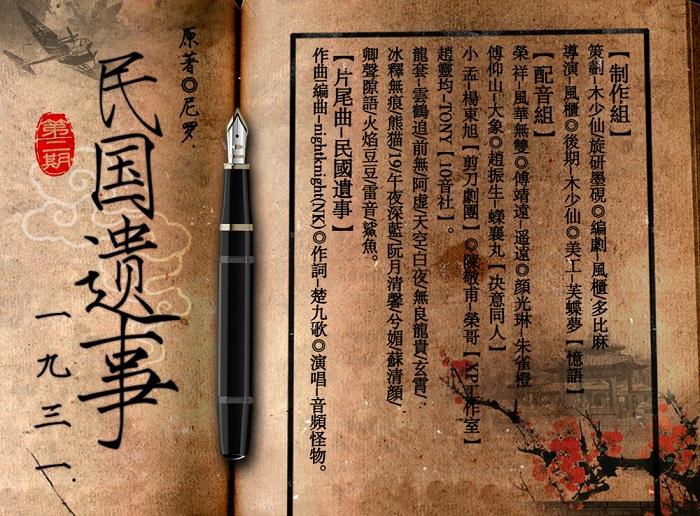 【制作組】
策劃–木少仙/旋研墨硯◎編劇–風櫃/多比麻
導演–風櫃◎後期–木少仙◎美工–芙蝶夢【憶語】
【配音組】
榮祥–風華無雙◎傅靖遠–遥遠◎顏光琳–朱雀橙
傅仰山–大象◎趙振生–蠑襄丸【决意同人】
小孟–楊東旭【剪刀劇團】◎陳敬甫–榮哥【XP工作室】
趙靈均–TONY【10音社】。
龍套–雲鶴追/前無/阿虚/天空/白夜/無良龍貴/玄霄/
冰釋無痕/熊猫/19/午夜深藍/阮月清馨/兮媚/蘇清顔/
卿聲隙語/火焰豆豆/雷音/鯊魚。
【片尾曲–民國遺事】
作曲/編曲–nightknight(NK)◎作詞–楚九歌◎演唱–音頻怪物。
原著◎尼罗
民国遗事
第二期
一九三一